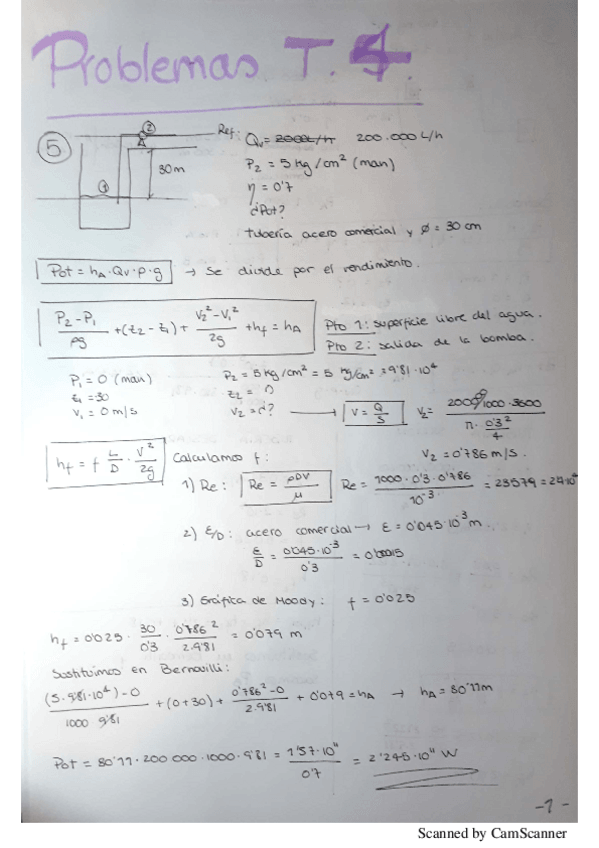 Problemas T.4.
5
2
Ref:
Qv = 2000 L/h 200.000 L/h
30m
1
P2 = 5 Kg/cm² (man)
η = 0'7
¿Pot?
tubería acero comercial y ø = 30 cm
Pot = hA · Qv · ρ · g → Se divide por el rendimiento.
(P2 - P1)/ρg + (z2 - z1) + (V2² - V1²)/2g + hf = hA
Pto 1: superficie libre del agua.
Pto 2: salida de la bomba.
P1 = 0 (man) P2 = 5 Kg/cm² = 5 Kg/cm² = 9'81·10⁴
z1 = 30 z2 = 0
V1 = 0 m/s V2 = ¿? → V = Q/S V2 = 200000/1000·3600 / π·0'3²/4
V2 = 0'786 m/s.
hf = f L/D · V²/2g Calculamos f:
1) Re: Re = ρDV/μ Re = 1000·0'3·0'786 / 10⁻³ = 23579 = 24·10⁴
2) ε/D: acero comercial → ε = 0'045·10⁻³ m.
ε/D = 0'045·10⁻³ / 0'3 = 0'00015
3) Gráfica de Moody: f = 0'025
hf = 0'025 · 30/0'3 · 0'786²/2·9'81 = 0'079 m
Sustituimos en Bernouilli:
(5·9'81·10⁴) - 0 / 1000 9'81 + (0+30) + 0'786² - 0 / 2·9'81 + 0'079 = hA → hA = 80'11m
Pot = 80'11 · 200 000 · 1000 · 9'81 = 1'57·10¹¹ / 0'7 = 2'245·10¹¹ W
-1-
Scanned by CamScanner